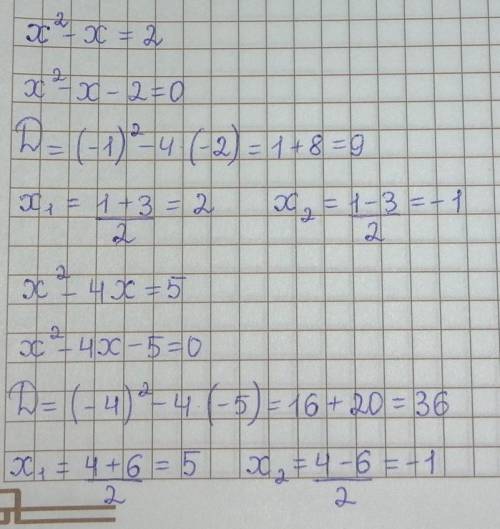 x² - x = 2
x² - x - 2 = 0
D = (-1)² - 4 · (-2) = 1 + 8 = 9
x₁ = (1 + 3)/2 = 2    x₂ = (1 - 3)/2 = -1
x² - 4x = 5
x² - 4x - 5 = 0
D = (-4)² - 4 · (-5) = 16 + 20 = 36
x₁ = (4 + 6)/2 = 5    x₂ = (4 - 6)/2 = -1